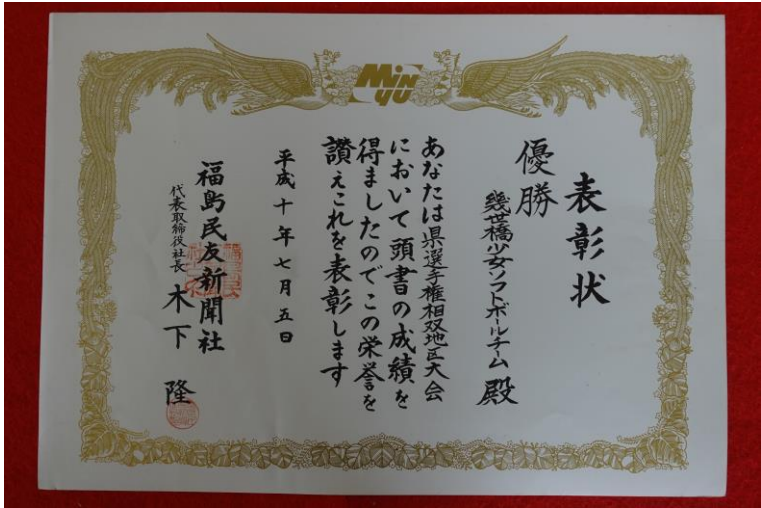 MiNYU
表彰状
優勝
幾世橋少女ソフトボールチーム 殿
あなたは県選手権相双地区大会
において頭書の成績を
得ましたのでこの栄誉を
讃えこれを表彰します
平成十年七月五日
福島民友新聞社
代表取締役社長 木下 隆